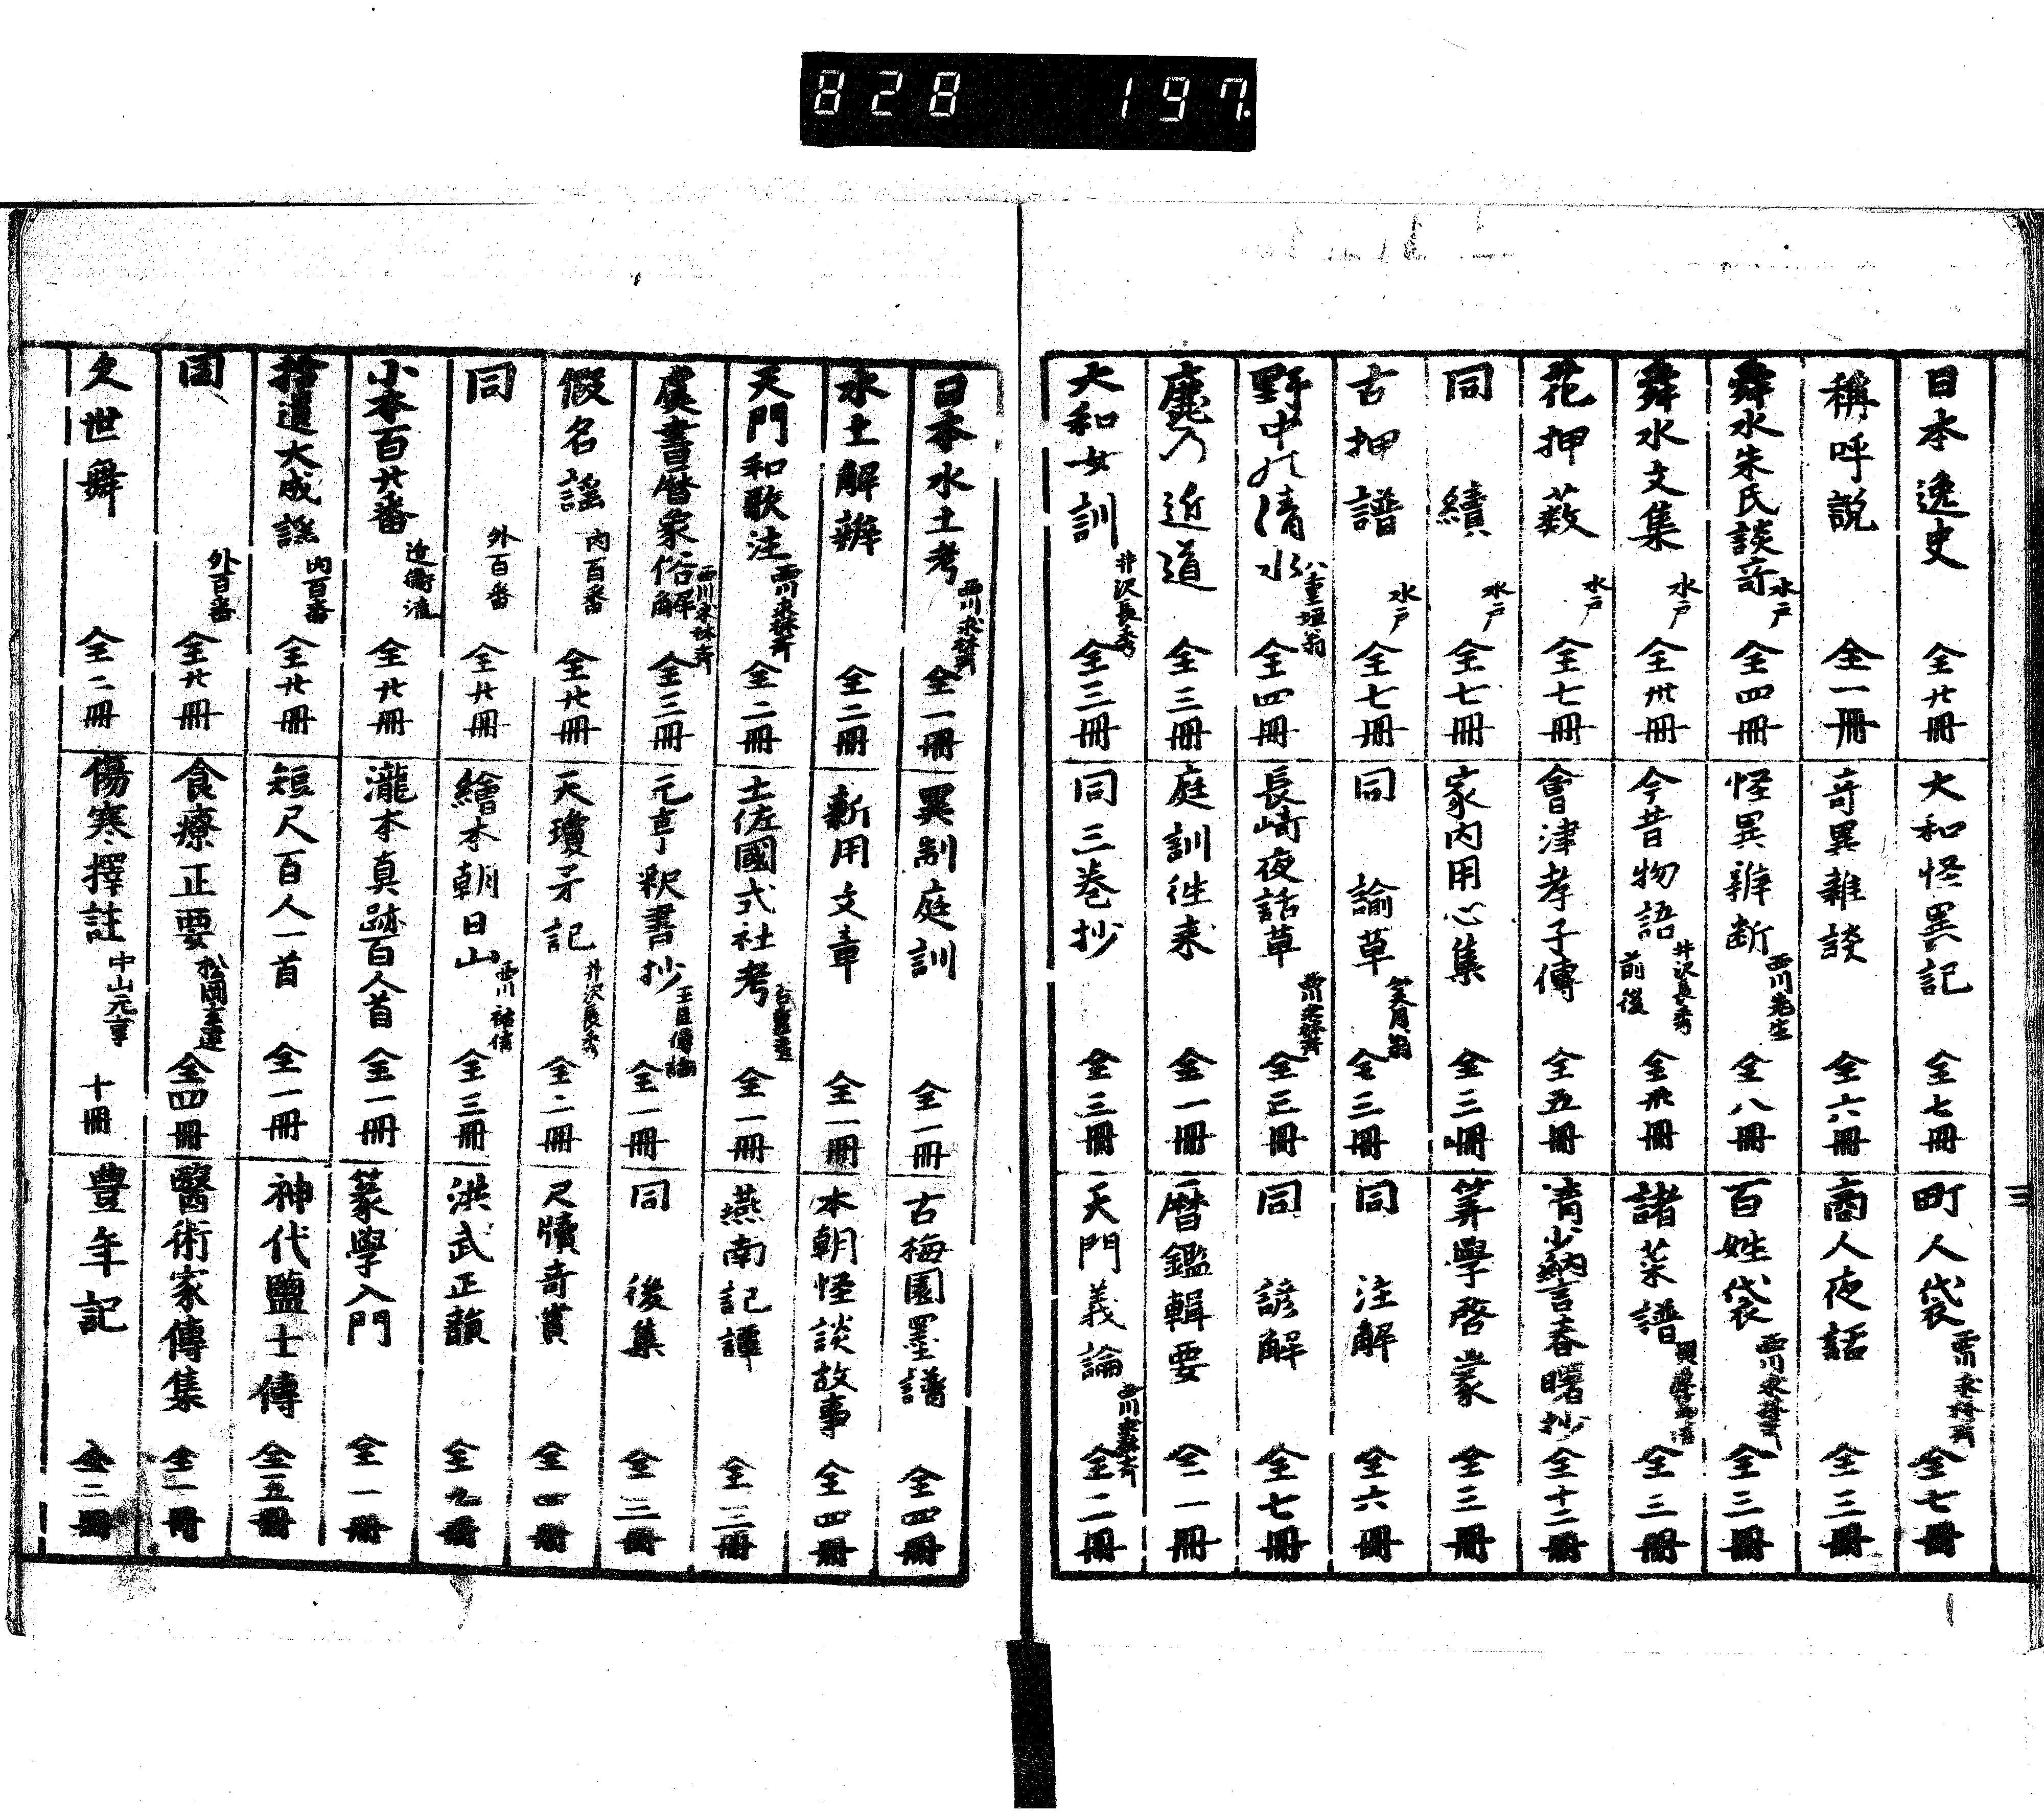 828 197.
三
日本逸史 全廿冊
稱呼説 全一冊
舜水朱氏談奇 水戸 全四冊
舜水文集 水戸 全卅冊
花押薮 水戸 全七冊
同 續 水戸 全七冊
古押譜 水戸 全七冊
野中の清水 八重垣翁 全四冊
麓乃近道 全三冊
大和女訓 井沢長秀 全三冊
大和怪異記 全七冊
奇異雜談 全六冊
怪異辨断 西川先生 全八冊
今昔物語 井沢長秀 前後 全 冊
會津孝子傳 全五冊
家内用心集 全三冊
同 諭草 笑月翁 全三冊
長崎夜話草 西川求林斎 全 冊
庭訓徃来 全一冊
同三巻抄 全三冊
町人袋 西川求林斎 全七冊
商人夜話 全三冊
百姓袋 西川求林斎 全三冊
諸菜譜 貝原 全三冊
清少納言春曙抄 全十二冊
筭學啓蒙 全三冊
同 注解 全六冊
同 諺解 全七冊
暦鑑輯要 全一冊
天門義論 西川求林斎 全二冊
日本水土考 西川求林斎 全一冊
水土解辨 全二冊
天門和歌注 西川求林斎 全二冊
虞書暦象俗解 西川求林斎 全三冊
假名謡 内百番 全廿冊
同 外百番 全廿冊
小本百廿番 近衛流 全廿冊
拾遺大成謡 内百番 全廿冊
同 外百番 全廿冊
久世舞 全二冊
異制庭訓 全一冊
新用文章 全一冊
土佐國式社考 全一冊
元亨釈書抄 王臣傳論 全一冊
天瓊矛記 井沢長秀 全二冊
繪本朝日山 西川祐信 全三冊
瀧本真跡百人首 全一冊
短尺百人一首 全一冊
食療正要 松岡玄達 全四冊
傷寒擇註 中山元亨 十冊
古梅園墨譜 全四冊
本朝怪談故事 全四冊
燕南記譚 全三冊
同 後集 全三冊
尺牘奇賞 全四冊
洪武正韻 全九冊
篆學入門 全一冊
神代鹽士傳 全五冊
醫術家傳集 全一冊
豊年記 全二冊